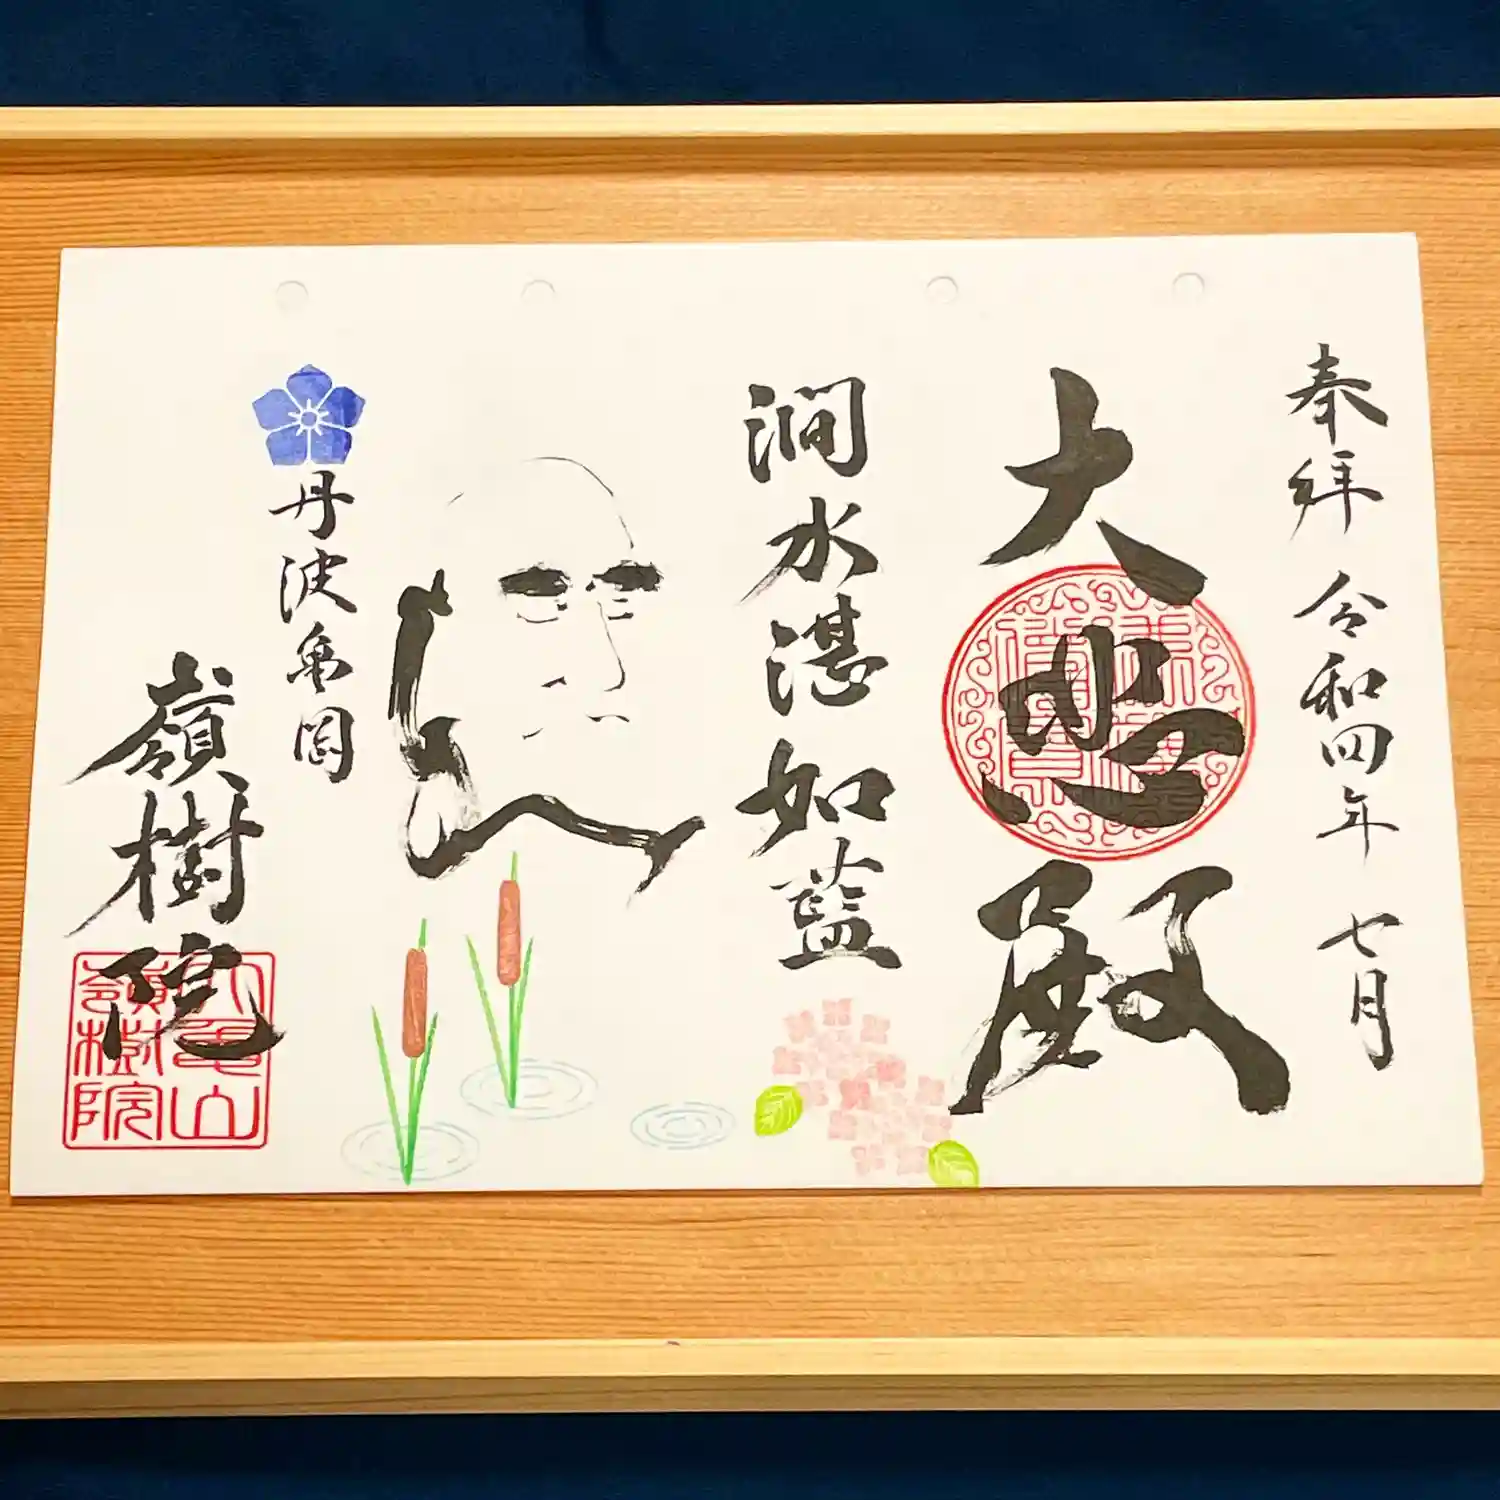 奉拝 令和四年 七月
大悲殿
澗水湛如藍
丹波亀岡
嶺樹院
大亀山
嶺樹院